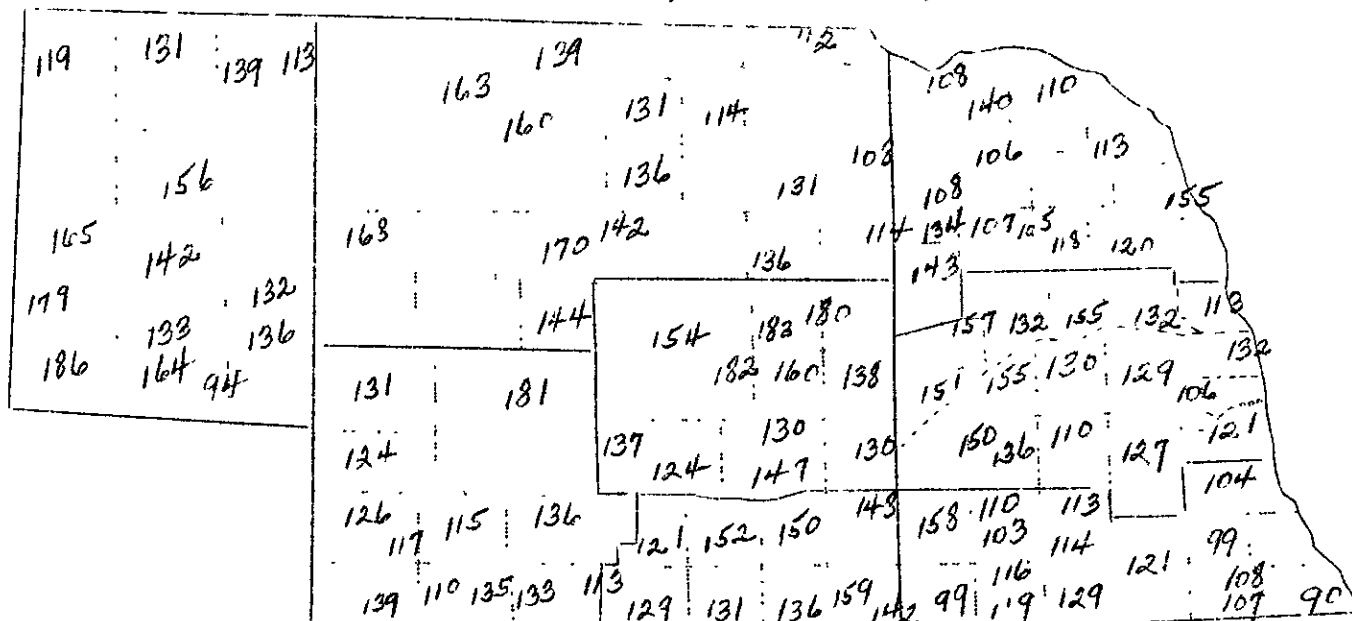 119 131 139 113 163 139 112 108 140 110
160 131 114 106 113
156 136 131 108 108 155
165 142 168 170 142 114 134 107 105 118 120
136 143
179 132 144 154 183 180 157 132 155 132 113
133 136
186 164 94 131 181 182 160 138 151 155 130 129 132 106
124 137 124 130 147 130 150 136 110 127 121 104
126 117 115 136 121 152 150 148 158 110 103 113 114 99
139 110 135 133 113 129 131 136 159 142 99 116 119 129 121 108 107 90